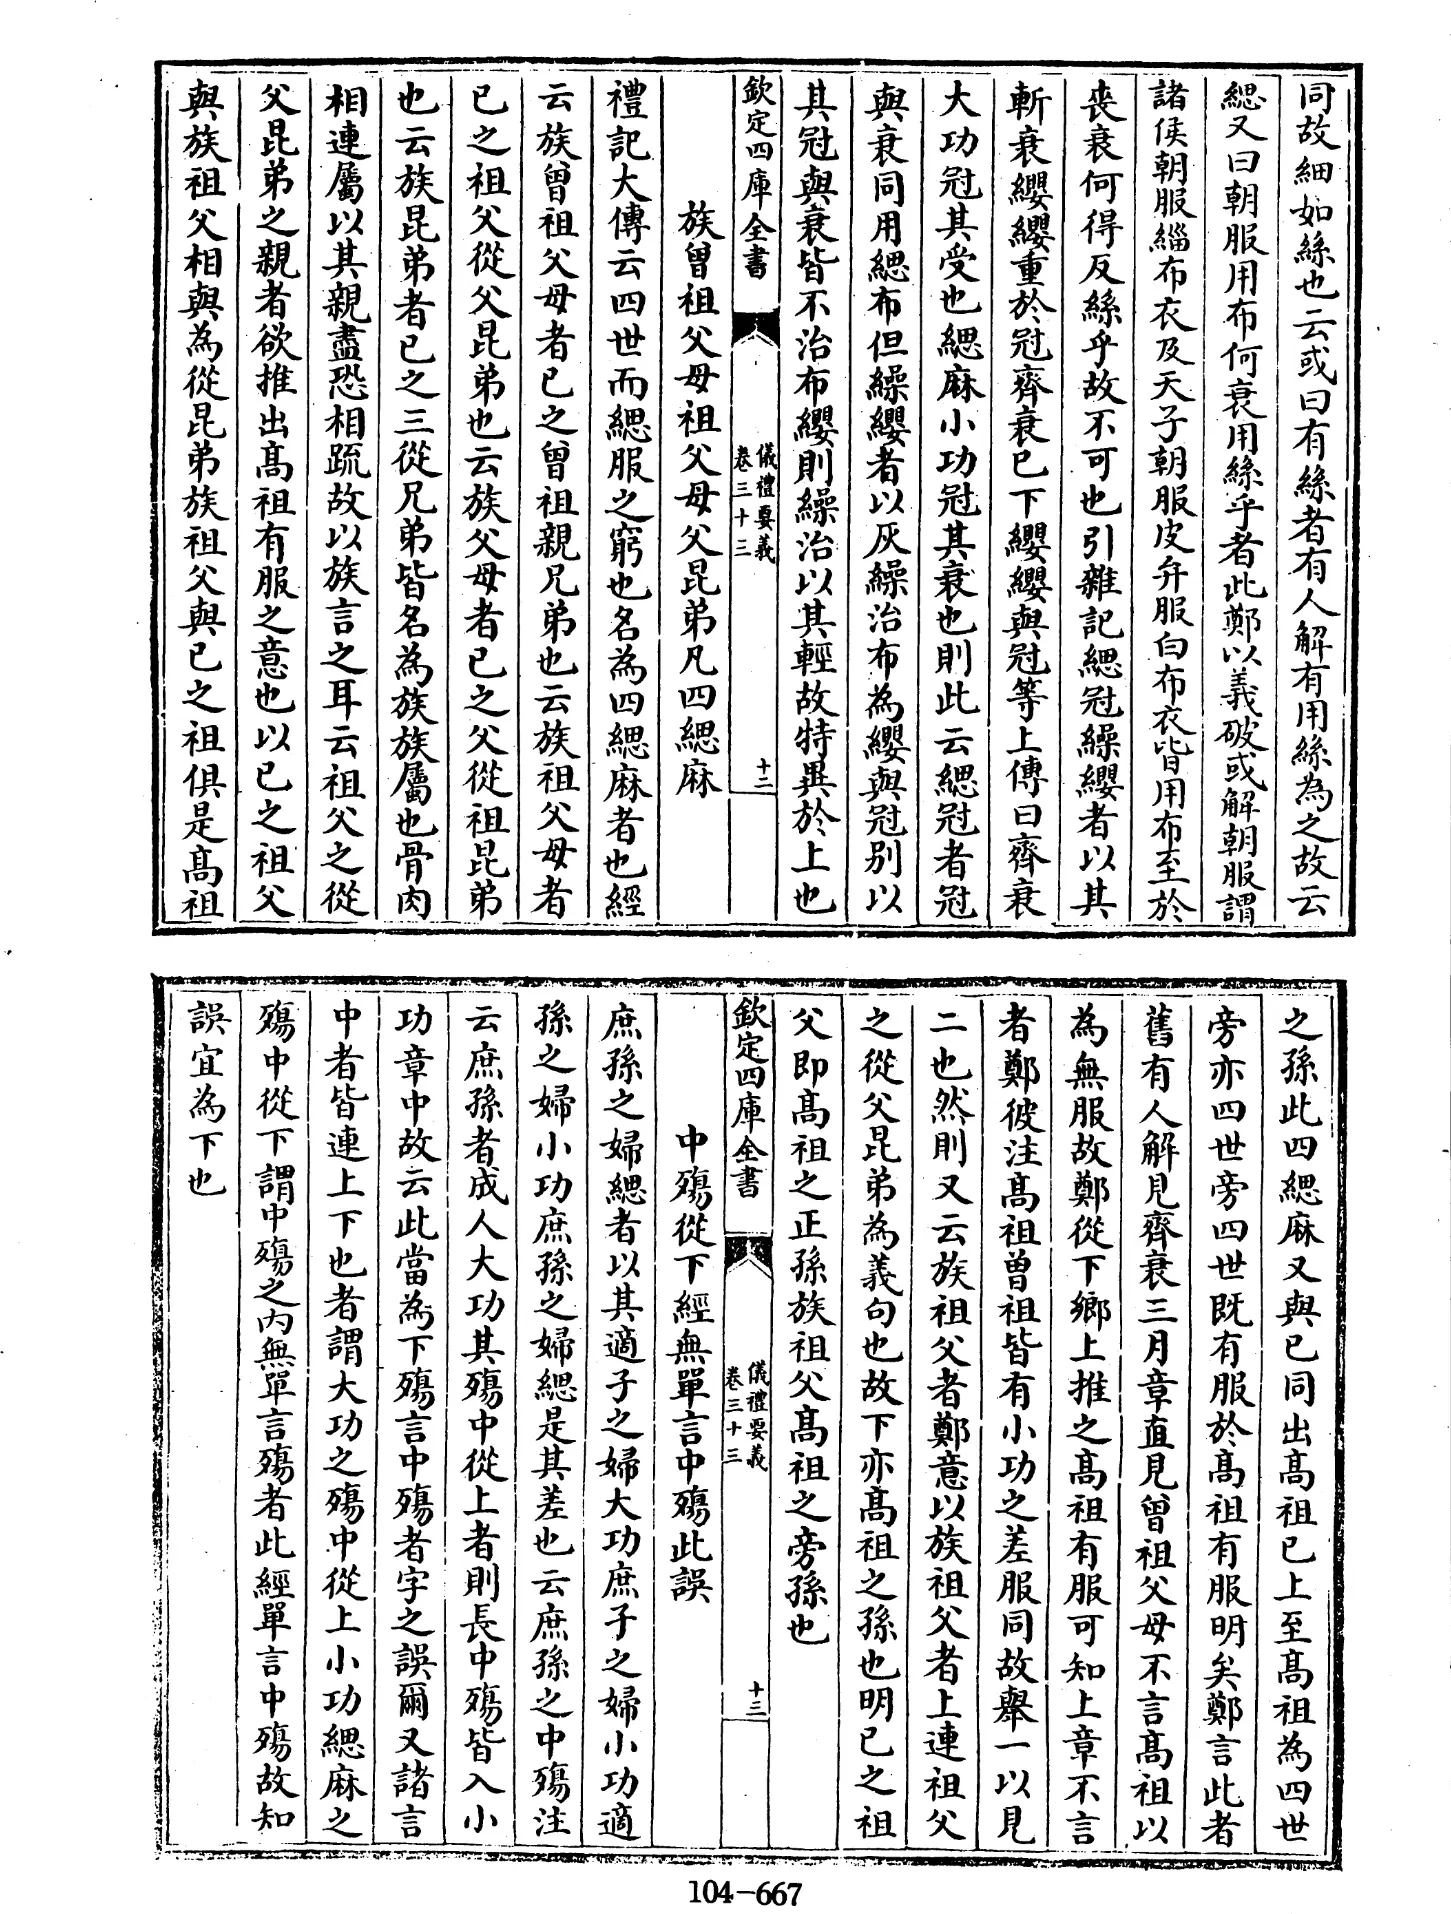 同故細如絲也云或曰有絲者有人解有用絲為之故云
緦又曰朝服用布何衰用絲乎者此鄭以義破或解朝服謂
諸侯朝服緇布衣及天子朝服皮弁服白布衣皆用布至於
喪衰何得反絲乎故不可也引雜記緦冠繰纓者以其
斬衰纓纓重於冠齊衰已下纓纓與冠等上傳曰齊衰
大功冠其受也緦麻小功冠其衰也則此云緦冠者冠
與衰同用緦布但繰纓者以灰繰治布為纓與冠別以
其冠與衰皆不治布纓則繰治以其輕故特異於上也
欽定四庫全書
儀禮要義
卷三十三
十二
族曾祖父母祖父母父昆弟凡四緦麻
禮記大傳云四世而緦服之窮也名為四緦麻者也經
云族曾祖父母者已之曾祖親兄弟也云族祖父母者
已之祖父從父昆弟也云族父母者已之父從祖昆弟
也云族昆弟者已之三從兄弟皆名為族族屬也骨肉
相連屬以其親盡恐相疏故以族言之耳云祖父之從
父昆弟之親者欲推出高祖有服之意也以已之祖父
與族祖父相與為從昆弟族祖父與已之祖俱是高祖
之孫此四緦麻又與已同出高祖已上至高祖為四世
旁亦四世旁四世既有服於高祖有服明矣鄭言此者
舊有人解見齊衰三月章直見曾祖父母不言高祖以
為無服故鄭從下鄉上推之高祖有服可知上章不言
者鄭彼注高祖曾祖皆有小功之差服同故舉一以見
二也然則又云族祖父者鄭意以族祖父者上連祖父
之從父昆弟為義句也故下亦高祖之孫也明已之祖
父即高祖之正孫族祖父高祖之旁孫也
欽定四庫全書
儀禮要義
卷三十三
十三
中殤從下經無單言中殤此誤
庶孫之婦緦者以其適子之婦大功庶子之婦小功適
孫之婦小功庶孫之婦緦是其差也云庶孫之中殤注
云庶孫者成人大功其殤中從上者則長中殤皆入小
功章中故云此當為下殤言中殤者字之誤爾又諸言
中者皆連上下也者謂大功之殤中從上小功緦麻之
殤中從下謂中殤之內無單言殤者此經單言中殤故知
誤宜為下也
104-667